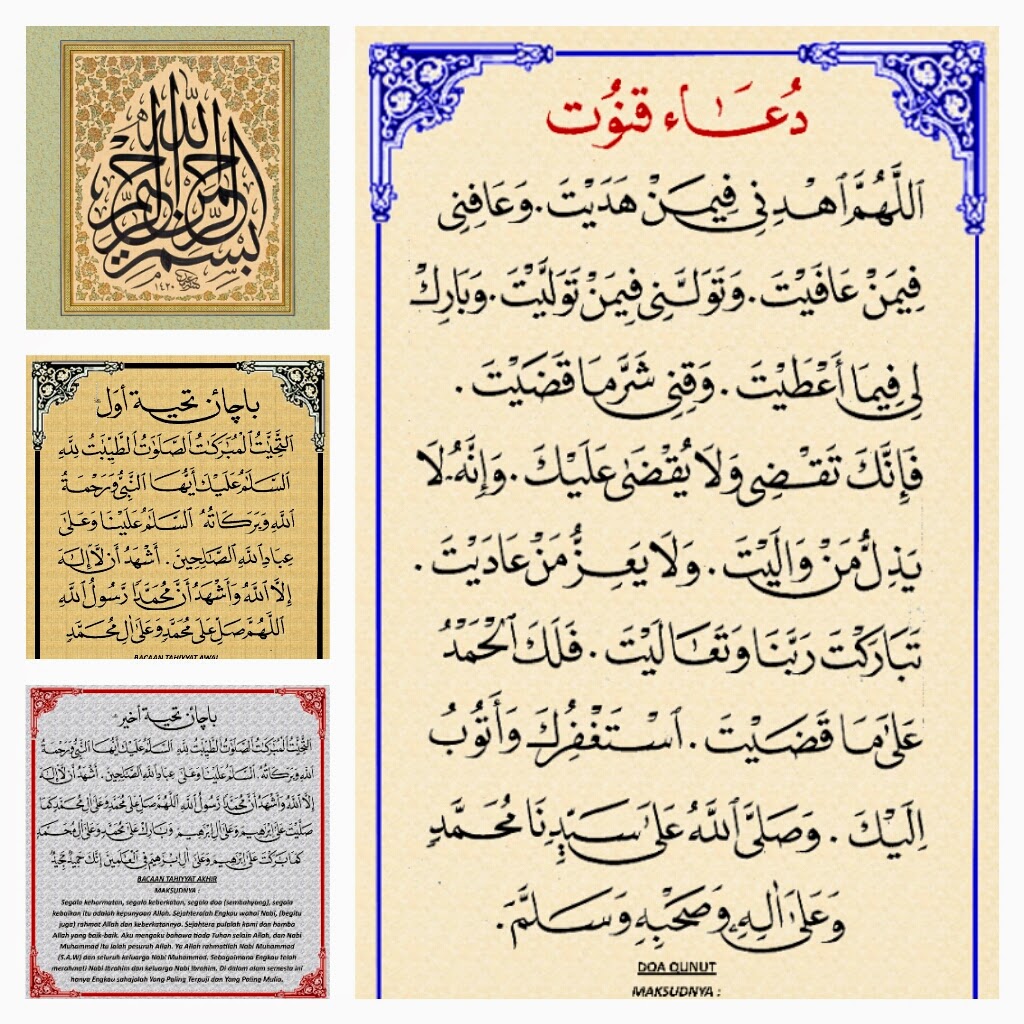 بسم الله الرحمن الرحيم
١٤٢٠
باچاءن تحية أول
اَلتَّحِيَّاتُ الْمُبَارَكَاتُ الصَّلَوَاتُ الطَّيِّبَاتُ لِلَّهِ
اَلسَّلَامُ عَلَيْكَ أَيُّهَا النَّبِيُّ وَرَحْمَةُ
اللهِ وَبَرَكَاتُهُ السَّلَامُ عَلَيْنَا وَعَلَى
عِبَادِ اللهِ الصَّالِحِينَ . أَشْهَدُ أَنْ لَّا إِلٰهَ
إِلَّا اللهُ وَأَشْهَدُ أَنَّ مُحَمَّدًا رَّسُولُ اللهِ
اَللّٰهُمَّ صَلِّ عَلَى مُحَمَّدٍ وَعَلَى اٰلِ مُحَمَّدٍ
BACAAN TAHIYYAT AWAL
باچاءن تحية أخير
اَلتَّحِيَّاتُ الْمُبَارَكَاتُ الصَّلَوَاتُ الطَّيِّبَاتُ لِلَّهِ السَّلَامُ عَلَيْكَ أَيُّهَا النَّبِيُّ وَرَحْمَةُ
اللهِ وَبَرَكَاتُهُ . السَّلَامُ عَلَيْنَا وَعَلَى عِبَادِ اللهِ الصَّالِحِينَ . أَشْهَدُ أَنْ لَّا إِلٰهَ
إِلَّا اللهُ وَأَشْهَدُ أَنَّ مُحَمَّدًا رَّسُولُ اللهِ اَللّٰهُمَّ صَلِّ عَلَى مُحَمَّدٍ وَعَلَى اٰلِ مُحَمَّدٍ كَمَا
صَلَّيْتَ عَلَى إِبْرَاهِيمَ وَعَلَى اٰلِ إِبْرَاهِيمَ وَبَارِكْ عَلَى مُحَمَّدٍ وَعَلَى اٰلِ مُحَمَّدٍ
كَمَا بَارَكْتَ عَلَى إِبْرَاهِيمَ وَعَلَى اٰلِ إِبْرَاهِيمَ فِي الْعَالَمِينَ إِنَّكَ حَمِيدٌ مَّجِيدٌ
BACAAN TAHIYYAT AKHIR
MAKSUDNYA :
Segala kehormatan, segala keberkatan, segala doa (sembahyang), segala
kebaikan itu adalah kepunyaan Allah. Sejahteralah Engkau wahai Nabi, (begitu
juga) rahmat Allah dan keberkatannya. Sejahtera pulalah kami dan hamba
Allah yang baik-baik. Aku mengaku bahawa tiada Tuhan selain Allah, dan Nabi
Muhammad itu ialah pesuruh Allah. Ya Allah rahmatilah Nabi Muhammad
(S.A.W) dan seluruh keluarga Nabi Muhammad. Sebagaimana Engkau telah
merahmati Nabi Ibrahim dan keluarga Nabi Ibrahim. Di dalam alam semesta ini
hanya Engkau sahajalah Yang Paling Terpuji dan Yang Paling Mulia.
دُعَاء قنوُت
اَللّٰهُمَّ اهْدِنِي فِيمَنْ هَدَيْتَ . وَعَافِنِي
فِيمَنْ عَافَيْتَ . وَتَوَلَّنِي فِيمَنْ تَوَلَّيْتَ . وَبَارِكْ
لِي فِيمَا أَعْطَيْتَ . وَقِنِي شَرَّ مَا قَضَيْتَ .
فَإِنَّكَ تَقْضِي وَلَا يُقْضَى عَلَيْكَ . وَإِنَّهُ لَا
يَذِلُّ مَنْ وَالَيْتَ . وَلَا يَعِزُّ مَنْ عَادَيْتَ .
تَبَارَكْتَ رَبَّنَا وَتَعَالَيْتَ . فَلَكَ الْحَمْدُ
عَلَى مَا قَضَيْتَ . اَسْتَغْفِرُكَ وَأَتُوبُ
اِلَيْكَ . وَصَلَّى اللهُ عَلَى سَيِّدِنَا مُحَمَّدٍ
وَعَلَى اٰلِهِ وَصَحْبِهِ وَسَلَّمَ .
DOA QUNUT
MAKSUDNYA :